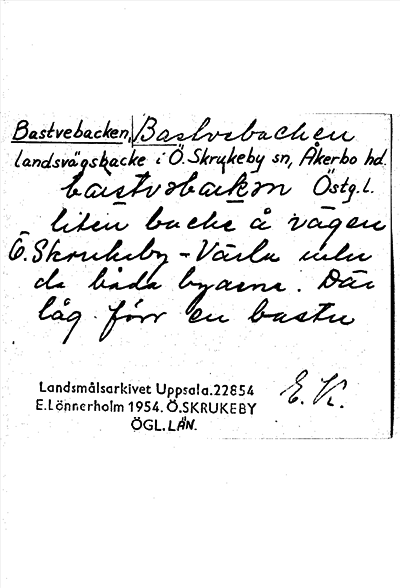 Bastvebacken, Bastvebacken
landsvägsbacke i Ö. Skrukeby sn, Åkerbo hd.
bastvəbakən Östg.l.
liten backe å vägen
Ö. Skrukeby - Värla
de båda byarna. Där
låg förr en bastu
Landsmålsarkivet Uppsala. 22854
E. Lönnerholm 1954. Ö. SKRUKEBY
ÖGL. LÄN.
E. K.